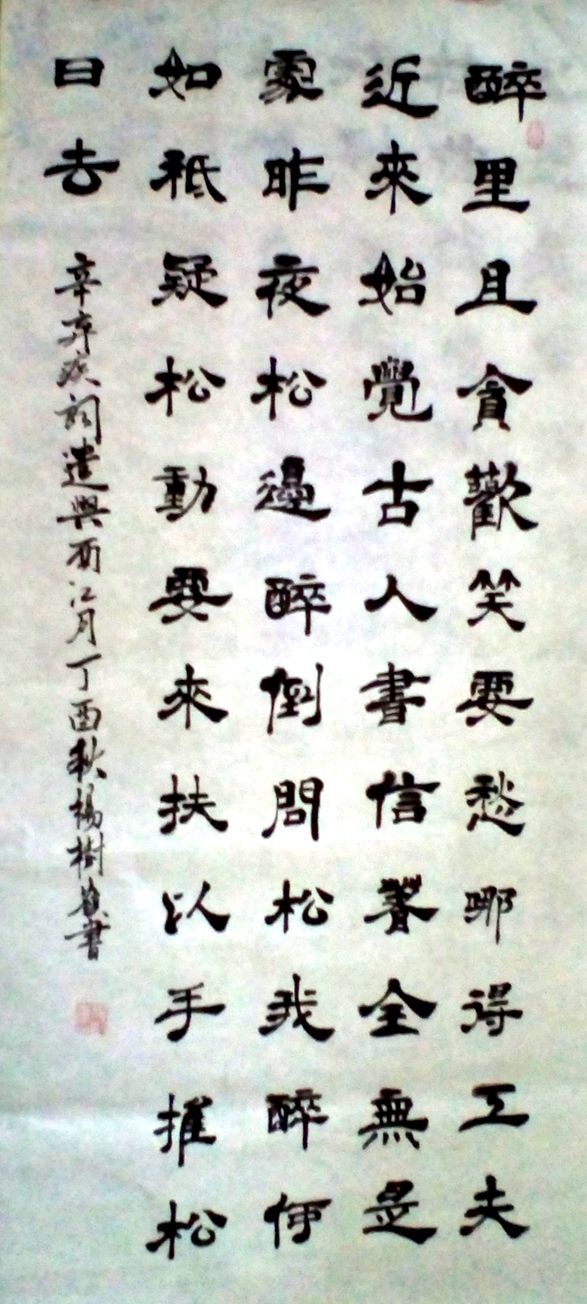 醉里且貪歡笑要愁哪得工夫
近來始覺古人書信著全無是
處昨夜松邊醉倒問松我醉何
如祗疑松動要來扶以手推松
曰去
辛弃疾詞遣興西江月丁酉秋楊樹書